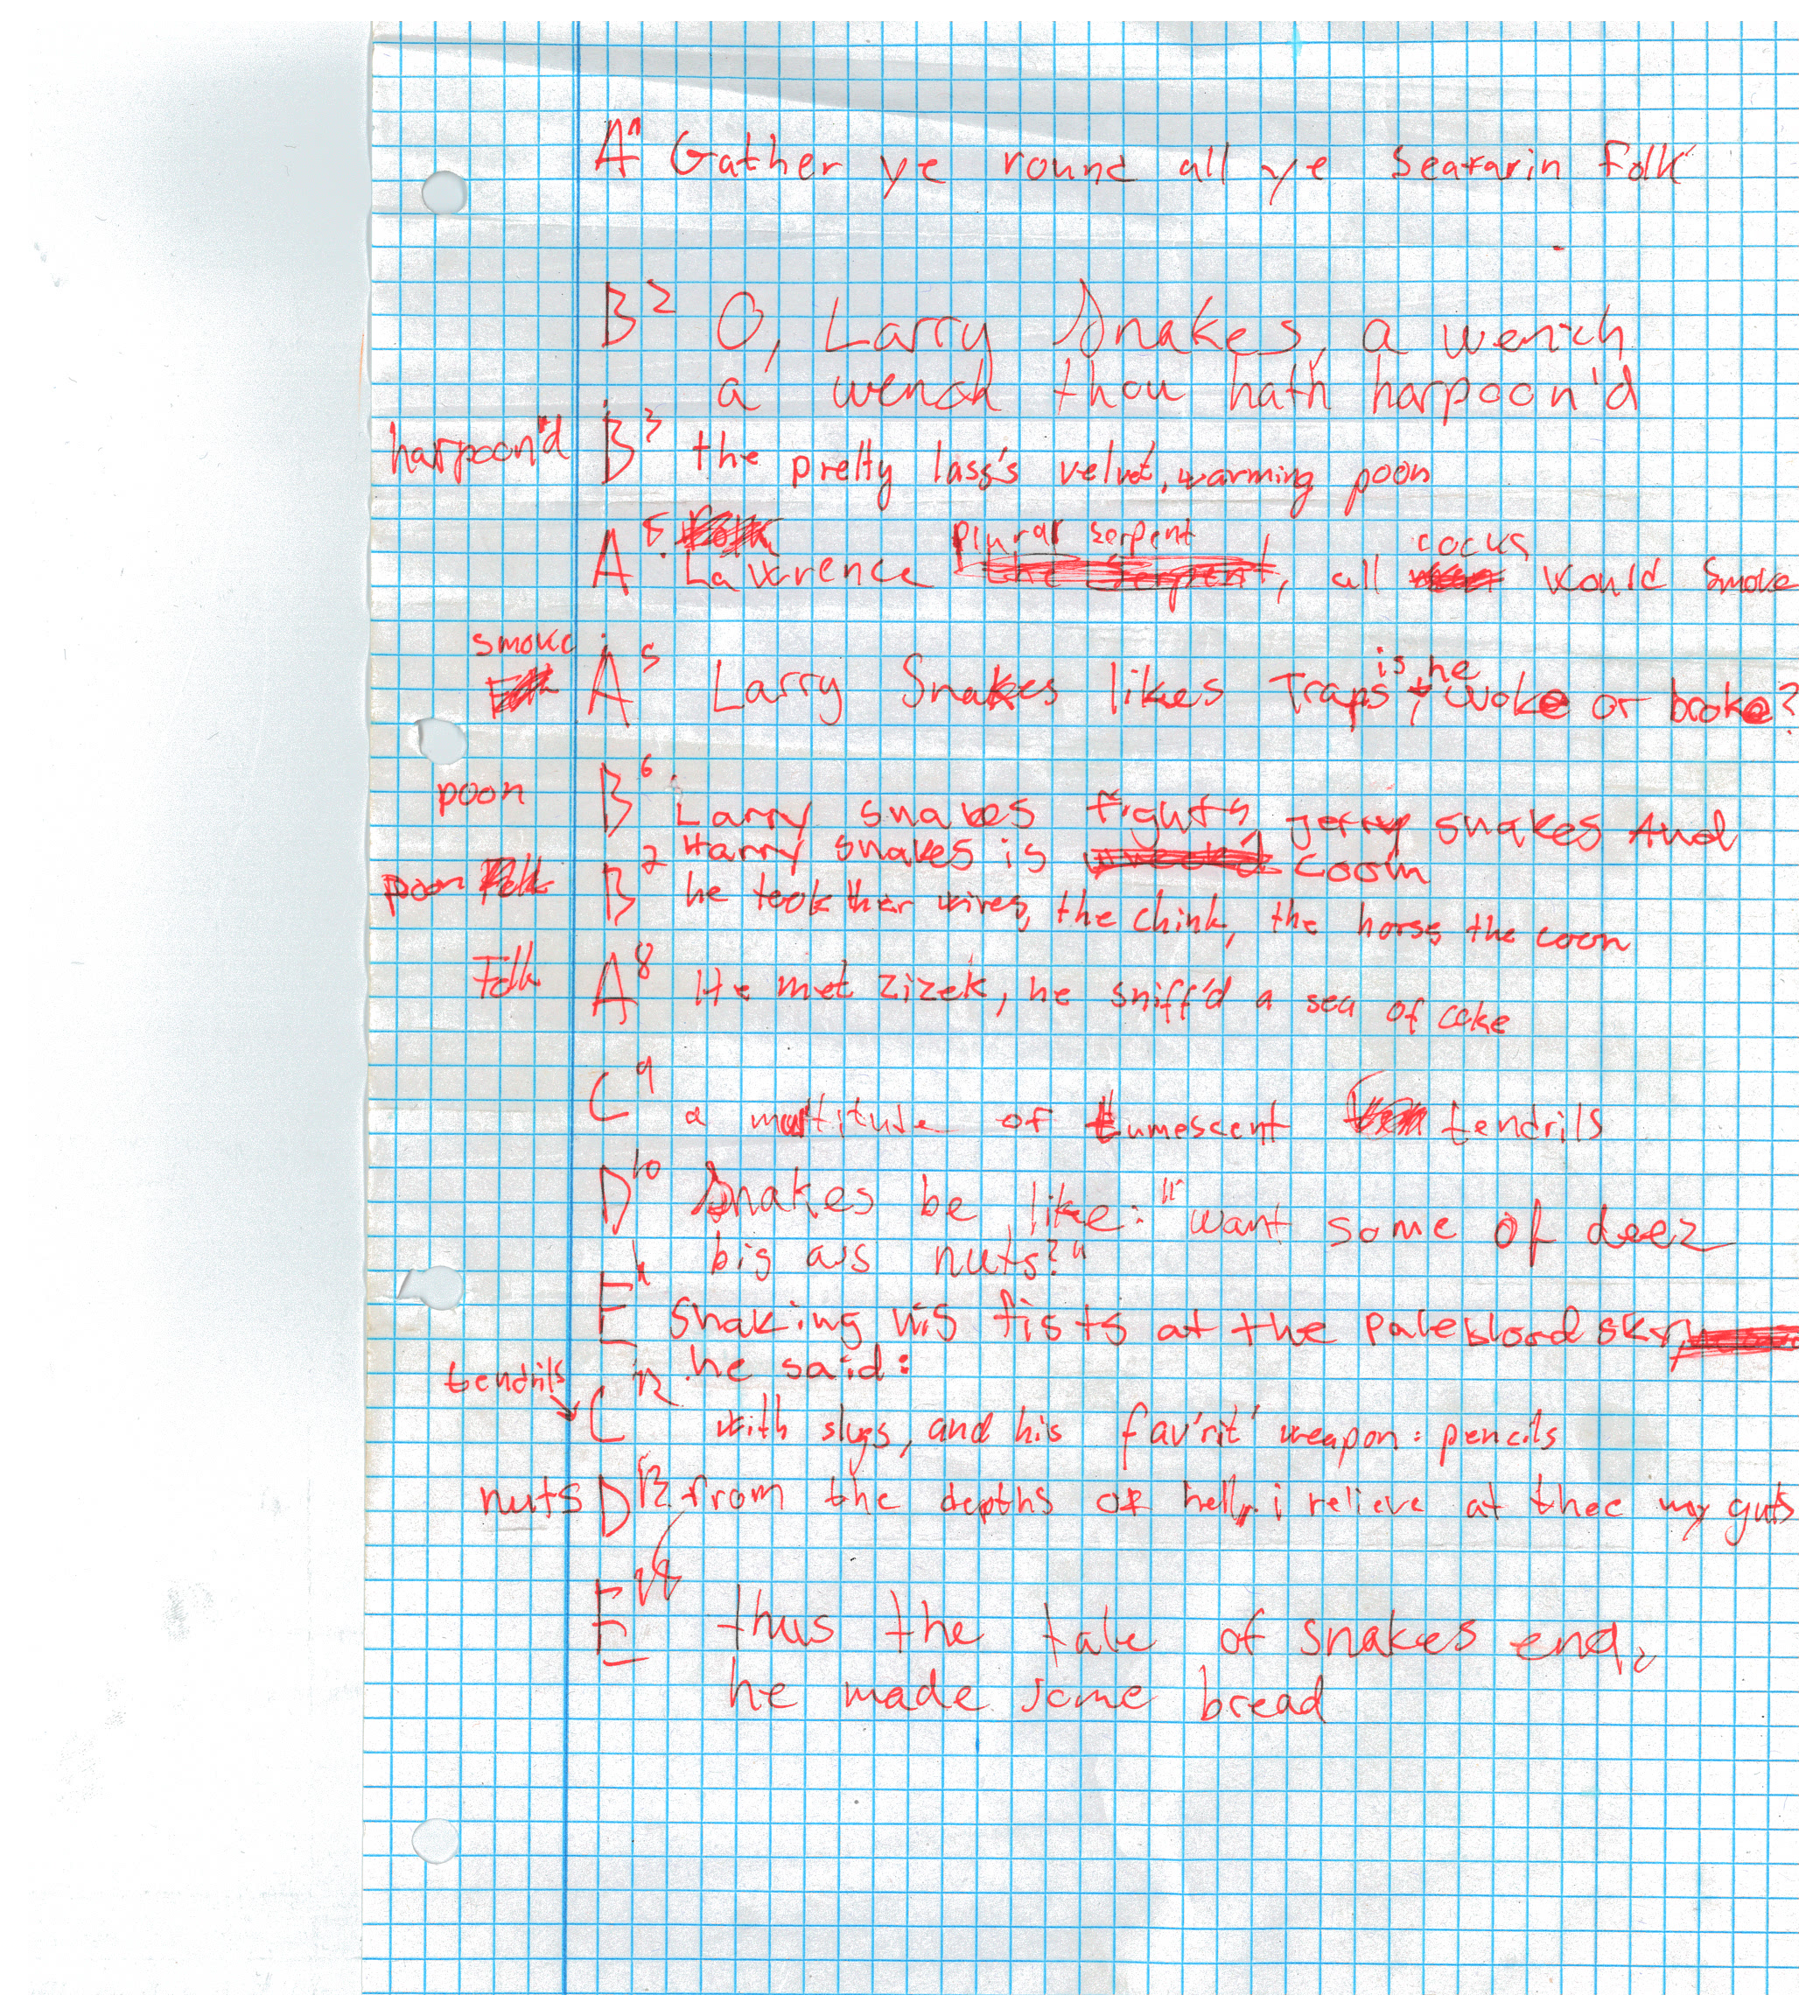 A Gather ye round all ye seafarin folk
B2 O, Larry Snakes, a wench
a wench thou hath harpoon'd
harpoon'd B3 the pretty lass's velvet, warming poon
plural serpent cocus
A Lawrence the serpent, all would smoke
smoke
is he
A5 Larry Snakes likes Traps, woke or broke?
poon B6 Larry snakes fights Jerry snakes And
Harry snakes is coo'n
poon Folk B7 he took ther wives, the chink, the horse, the coon
Folk A8 He met Zizek, he sniff'd a sea of coke
C9 a multitude of tumescent tendrils
D10 Snakes be like: "want some of deez
big ass nuts?"
E11 Shaking his fists at the paleblood sky,
he said:
tendrils
C12 with slugs, and his fav'rit' weapon: pencils
nuts D from the depths of hell, i relieve at thee my guts
E thus the tale of snakes end,
he made some bread